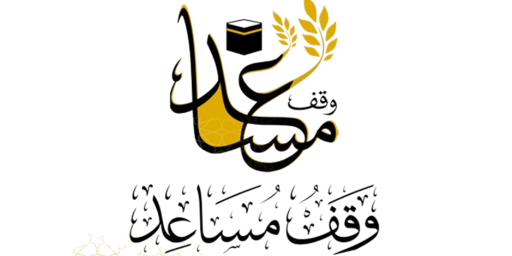 وقف
مساعد
وَقَفُ مُسَاعِد